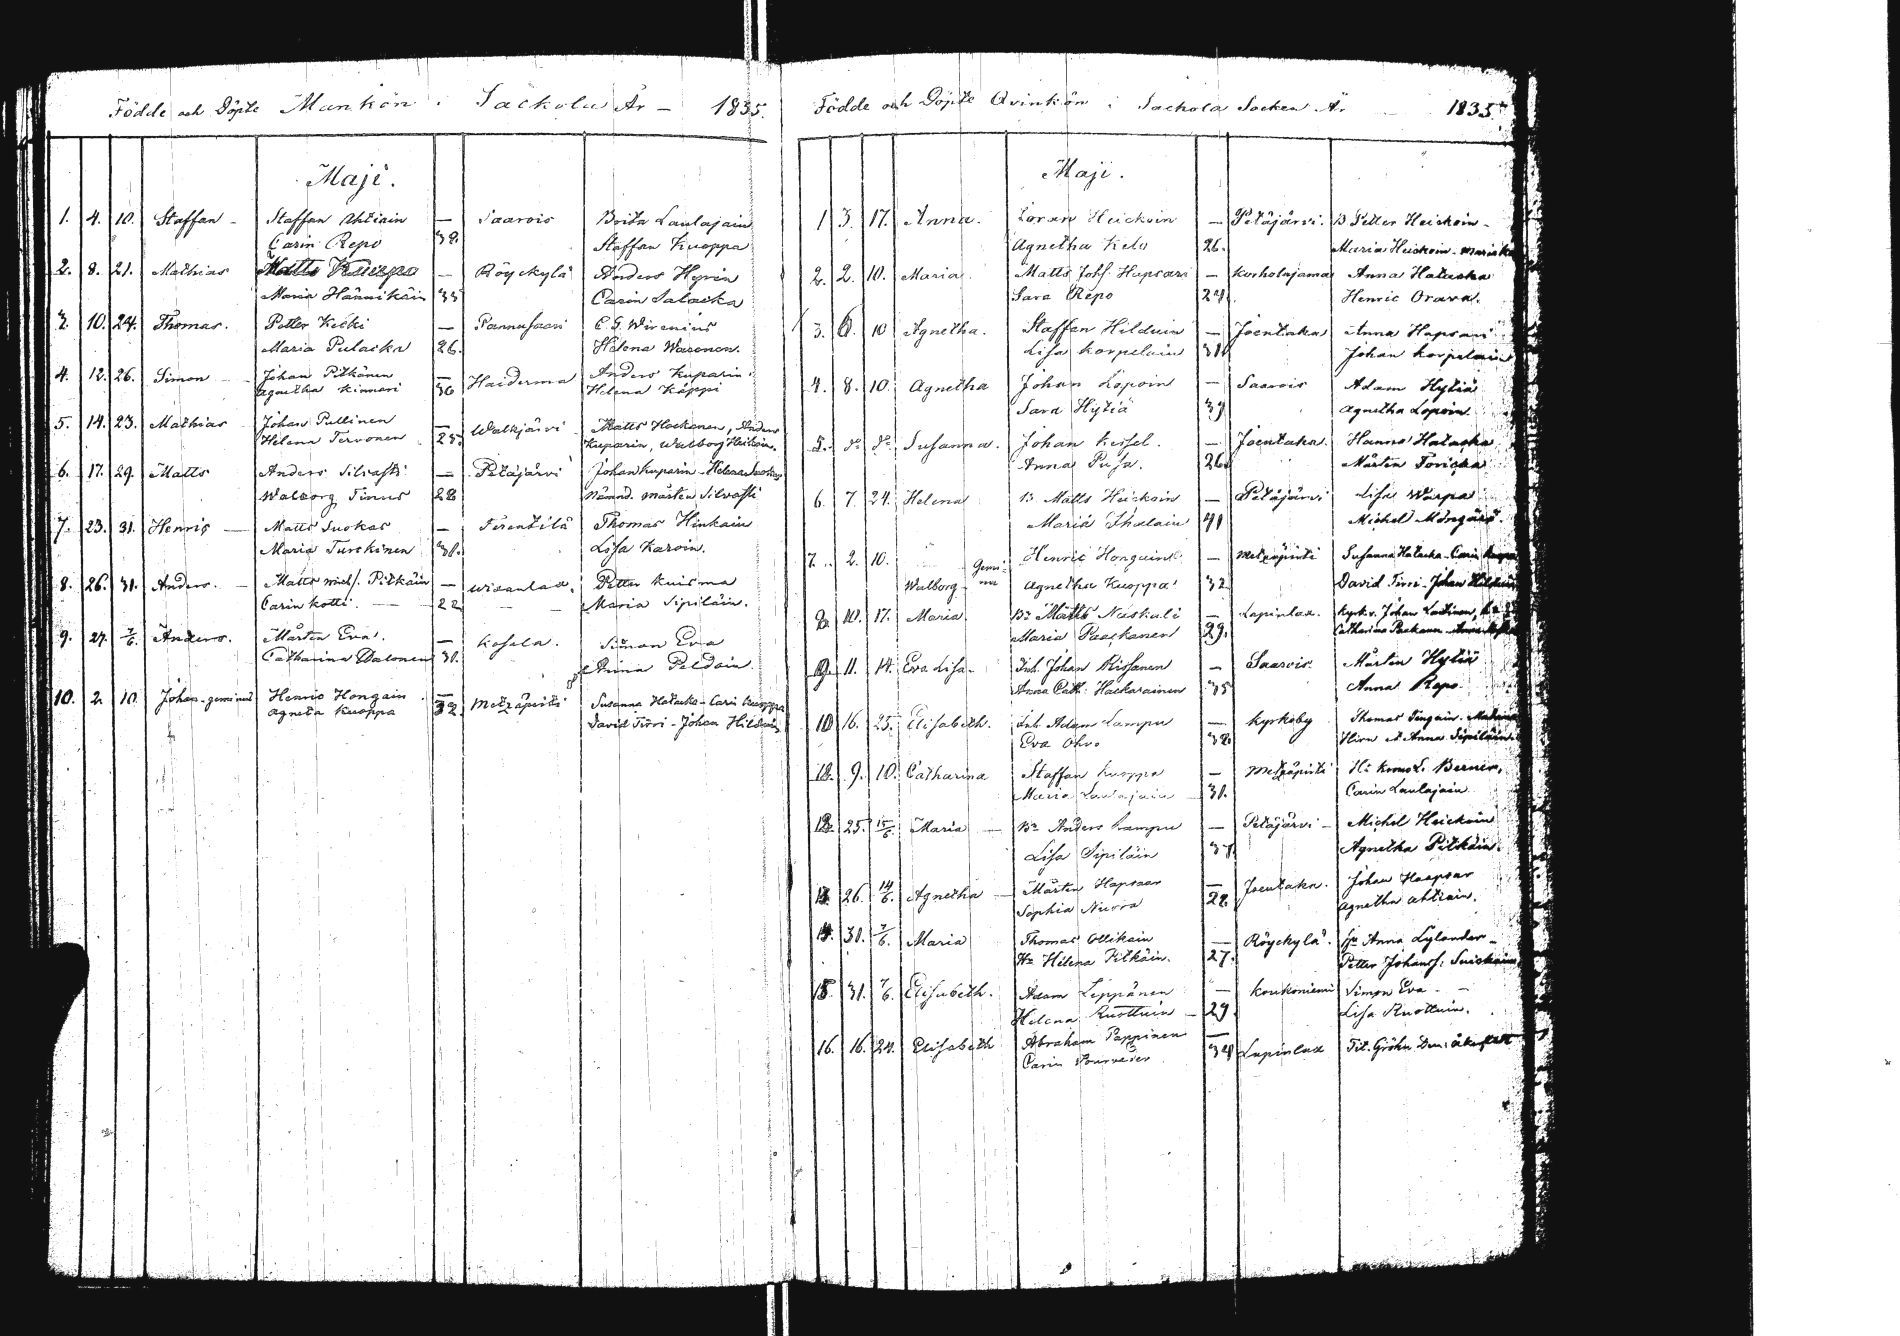 Födde och Döpte Mankön i Sackola År – 1835.
Maji.
1. 4. 10. Staffan – Staffan Ahtiain – Saarois Brita Laulajain
Carin Repo 38. Staffan Kuoppa
2. 8. 21. Mathias Matts – Röyckylä Anders Hyvin
Maria Hännikäin 35 Carin Salacka
3. 10. 24. Thomas. Petter Kecki – Pannusaari C. G. Wirenius
Maria Pulacka 26. Helena Waronen.
4. 12. 26. Simon – Johan Pitkänen – Haiderma Anders Kuparin
Agnetha Kinnari 30 Helena Käppi
5. 14. 23. Mathias Johan Pullinen – Walkjärvi Matts Hockanen, Anders
Helena Tervonen 25. Kuparin, Walborg Heikoin.
6. 17. 29. Matts Anders Silvasti – Petäjärvi Johan Kuparin – Helena
Walborg Sinus 28 Nämnd. Mårten Silvasti
7. 23. 31. Henric – Matts Suokas – Terentilä Thomas Hinkain
Maria Turckinen 31. Lisa Karvin.
8. 26. 31. Anders. – Matts Mich. Pitkäin – Wisanlax. Petter Kuisma
Carin Kotti. – 22 – – Maria Sipiläin.
9. 27. 7/6. Anders. Mårten Eva. – Kosela. Simon Eva
Catharina Dalonen 31. Anna Peldoin
10. 2 10. Johan – gemini Henric Hongain. – Metzäpirtti Susanna Hatacka – Carin Kuoppa
Agneta Kuoppa 32. David Tirri – Johan Hilduin
Födde och Döpte Qvinkön i Sackola Socken År 1835.
Maji.
1 3. 17. Anna. Loran Heickoin – Petäjärvi. B Petter Heickoin –
Agnetha Keto 26. Maria Heickoin –
2. 2. 10. Maria. Matts Johs. Hapsari – Korholajama Anna Hatacka
Sara Repo 24. Henric Orava.
3. 6. 10 Agnetha. Staffan Hilduin – Joentaka Anna Hapsari
Lisa Korpelain 31 Johan Korpelain
4. 8. 10. Agnetha Johan Lopoin – Saarois Adam Hytiä
Sara Hytiä 39 Agnetha Lopoin
5. do do Susanna. Johan Kissel. – Joentaka. Hannes Hatacka
Anna Pusa. 26. Mårten Toricka
6. 7. 24. Helena B. Matts Heickoin – Petäjärvi Lisa Warpa
Maria Ihalain 41 Michel Möngäri.
7. 2. 10. Gemi- Henric Honguin – Metzäpirtti Susanna Hatacka – Carin Kuoppa
Walborg – ni Agnetha Kuoppa 32 David Tirri – Johan Hilduin
10. 17. Maria. Bn Matts Naskali – Lapinlax. Kyrkv. Johan
Maria Paackanen 29. Catharina Paakanen
11. 14. Eva Lisa – Inh. Johan Kissanen – Saarois. Mårten Hytiä
Anna Cath: Hackarainen 35 Anna Repo.
10 16. 25. Elisabeth. Inh. Adam Lampu – Kyrkoby Thomas Tengain.
Eva Ohvo 32 Hirn o Anna Sipiläin
9. 10. Catharina Staffan Kuoppa – Metzäpirtti Berner,
Maria Laulajain 31. Carin Laulajain.
25. 15/6. Maria – Bn Anders Lampu – Petäjärvi – Michel Heickoin
Lisa Sipiläin 37. Agnetha Pitkäin.
26. 14/6. Agnetha – Mårten Hapsaar – Joentaka. Johan Haapsar
Sophia Nurva 22. Agnetha Ahtiain.
14. 30. 7/6. Maria Thomas Ollikain – Röyckylä. Anna Lylander –
Ha Helena Pitkäin. 27. Petter Johanss: Suickoin
15. 31. 7/6. Elisabeth. Adam Leppänen – Koukoniemi Simon Eva. –
Helena Ruottuin – 29. Lisa Ruottuin.
16. 16. 24. Elisabeth Abraham Pappinen – Lapinlax Tit. Gröhn
Carin 34